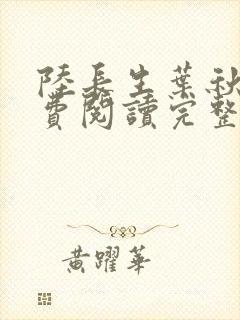 陸長生葉秋
費閱讀完整
黃躍華